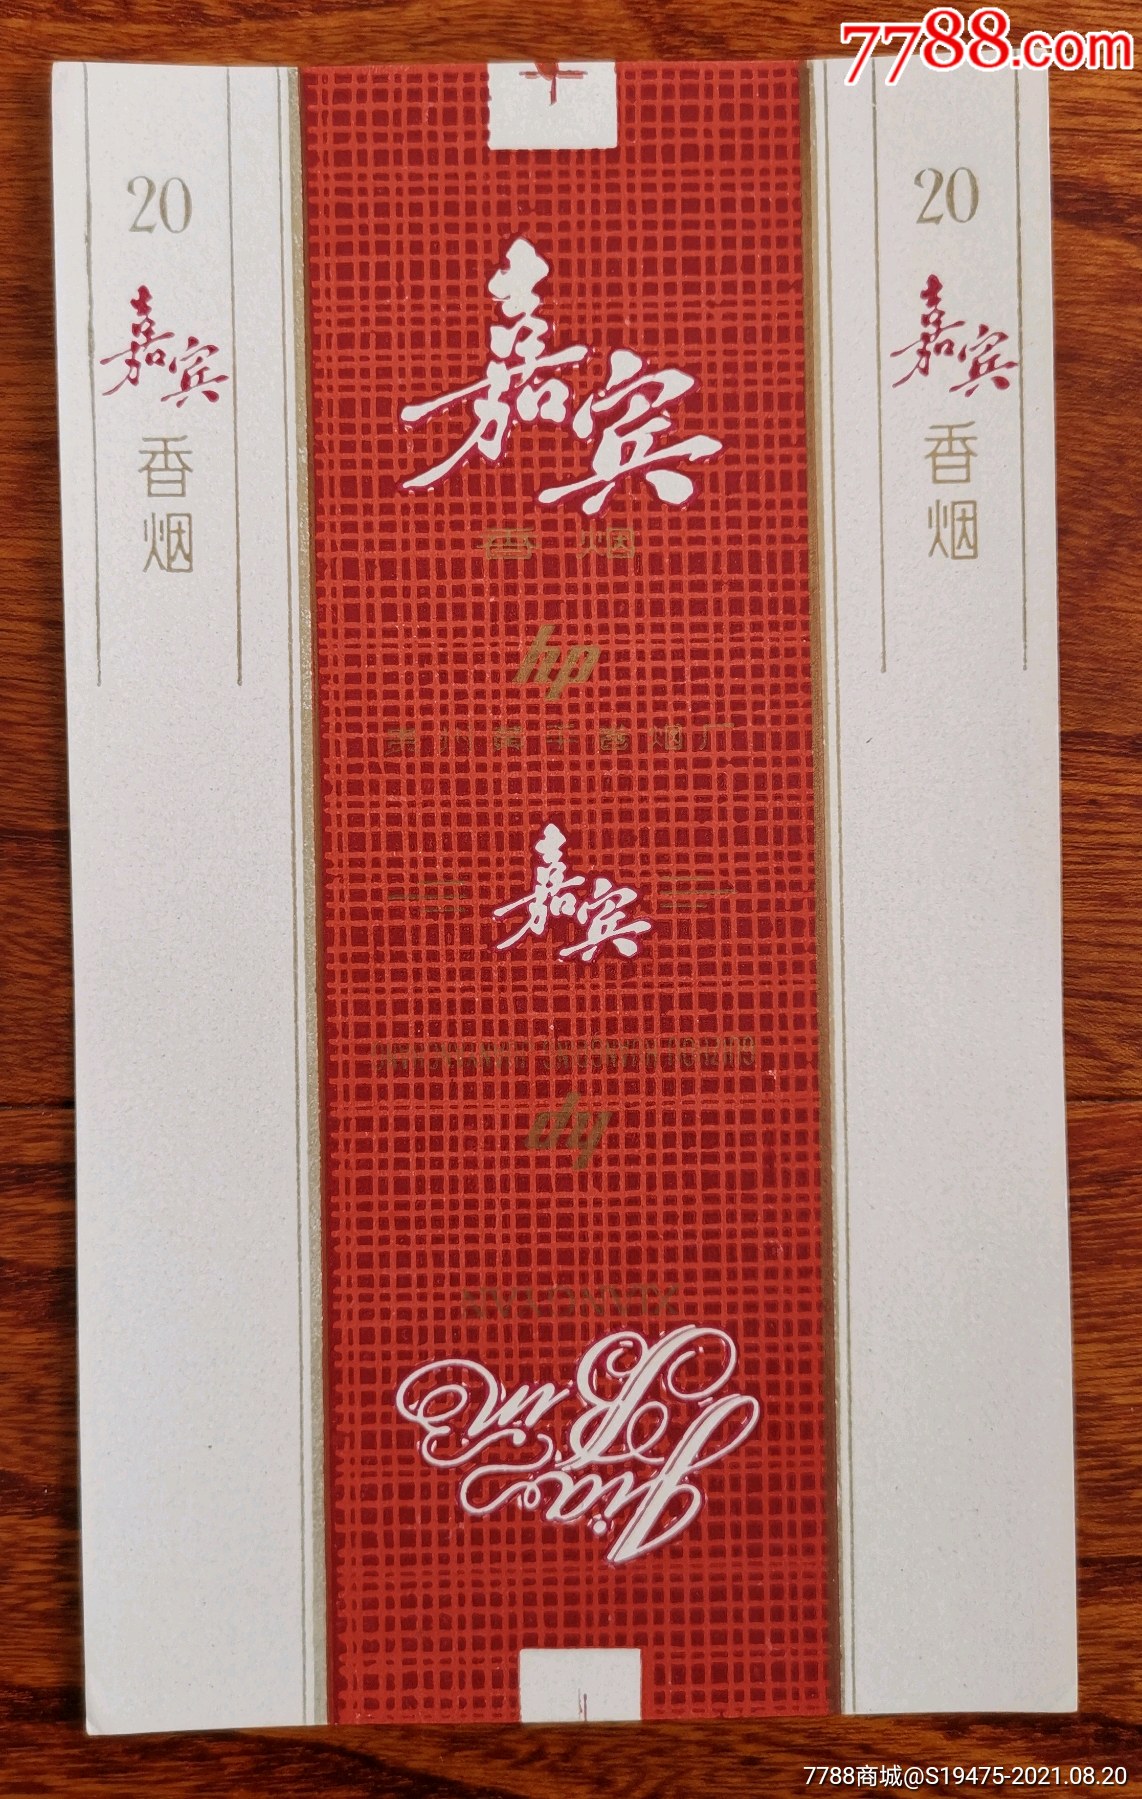 7788.com
20
嘉宾
香
烟
嘉宾
香烟
hp
贵州黄平香烟厂
嘉宾
hp
XIANGYAN
Jia
Bin
20
嘉宾
香
烟
7788商城@S19475-2021.08.20